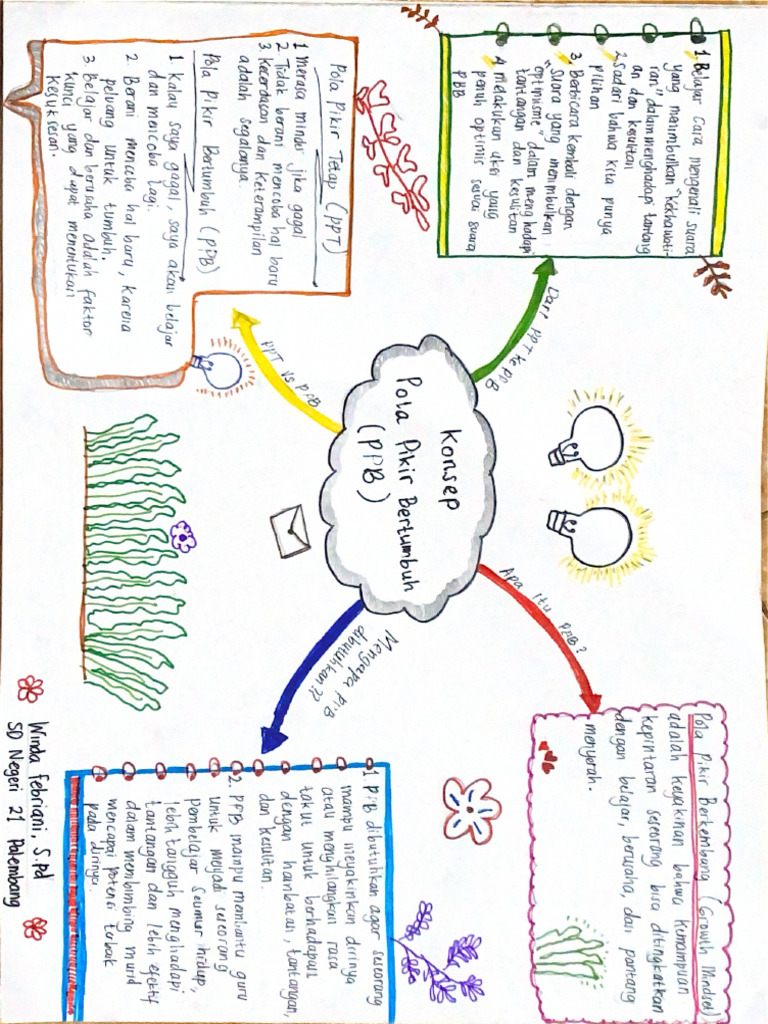 Konsep
Pola Pikir Bertumbuh
(PPB)
Dari PPT ke PPB
1. Belajar cara mengenali suara
yang manimbulkan "kekhawati-
ran" dalam menghadapi tantang
an dan kesulitan
2. Sadari bahwa kita punya
pilihan
3. Berbicara kembali dengan
"Suara yang menimbulkan
optimisme" dalam menghadapi
tantangan dan kesulitan
4. melakukan aksi yang
penuh optimis sesuai suara
PBB
Apa itu PPB?
Pola Pikir Berkembang (Growth Mindset)
adalah keyakinan bahwa kemampuan
kepintaran seseorang bisa ditingkatkan
dengan belajar, berusaha, dan pantang
menyerah.
PPT vs PPB
Pola Pikir Tetap (PPT)
1 merasa minder jika gagal
2 Tidak berani mencoba hal baru
3. Kecerdasan dan keterampilan
adalah segalanya.
Pola Pikir Bertumbuh (PPB)
1 Kalau saya gagal, saya akan belajar
dan mencoba lagi.
2. Berani mencoba hal baru, karena
peluang untuk tumbuh,
3. Belajar dan berusaha adalah faktor
kunci yang dapat menentukan
kesuksesan.
Mengapa PPB
dibutuhkan??
1 PPB dibutuhkan agar seseorang
mampu meyakinkan dirinya
atau menghilangkan rasa
takut untuk berhadapan
dengan hambatan, tantangan,
dan kesulitan.
2. PPB mampu membantu guru
untuk menjadi seseorang
pembelajar seumur hidup,
lebih tangguh menghadapi
tantangan dan lebih efektif
dalam membimbing murid
mencapai potensi terbaik
pada dirinya.
Winda Febriani, S.Pd
SD Negeri 21 Palembang